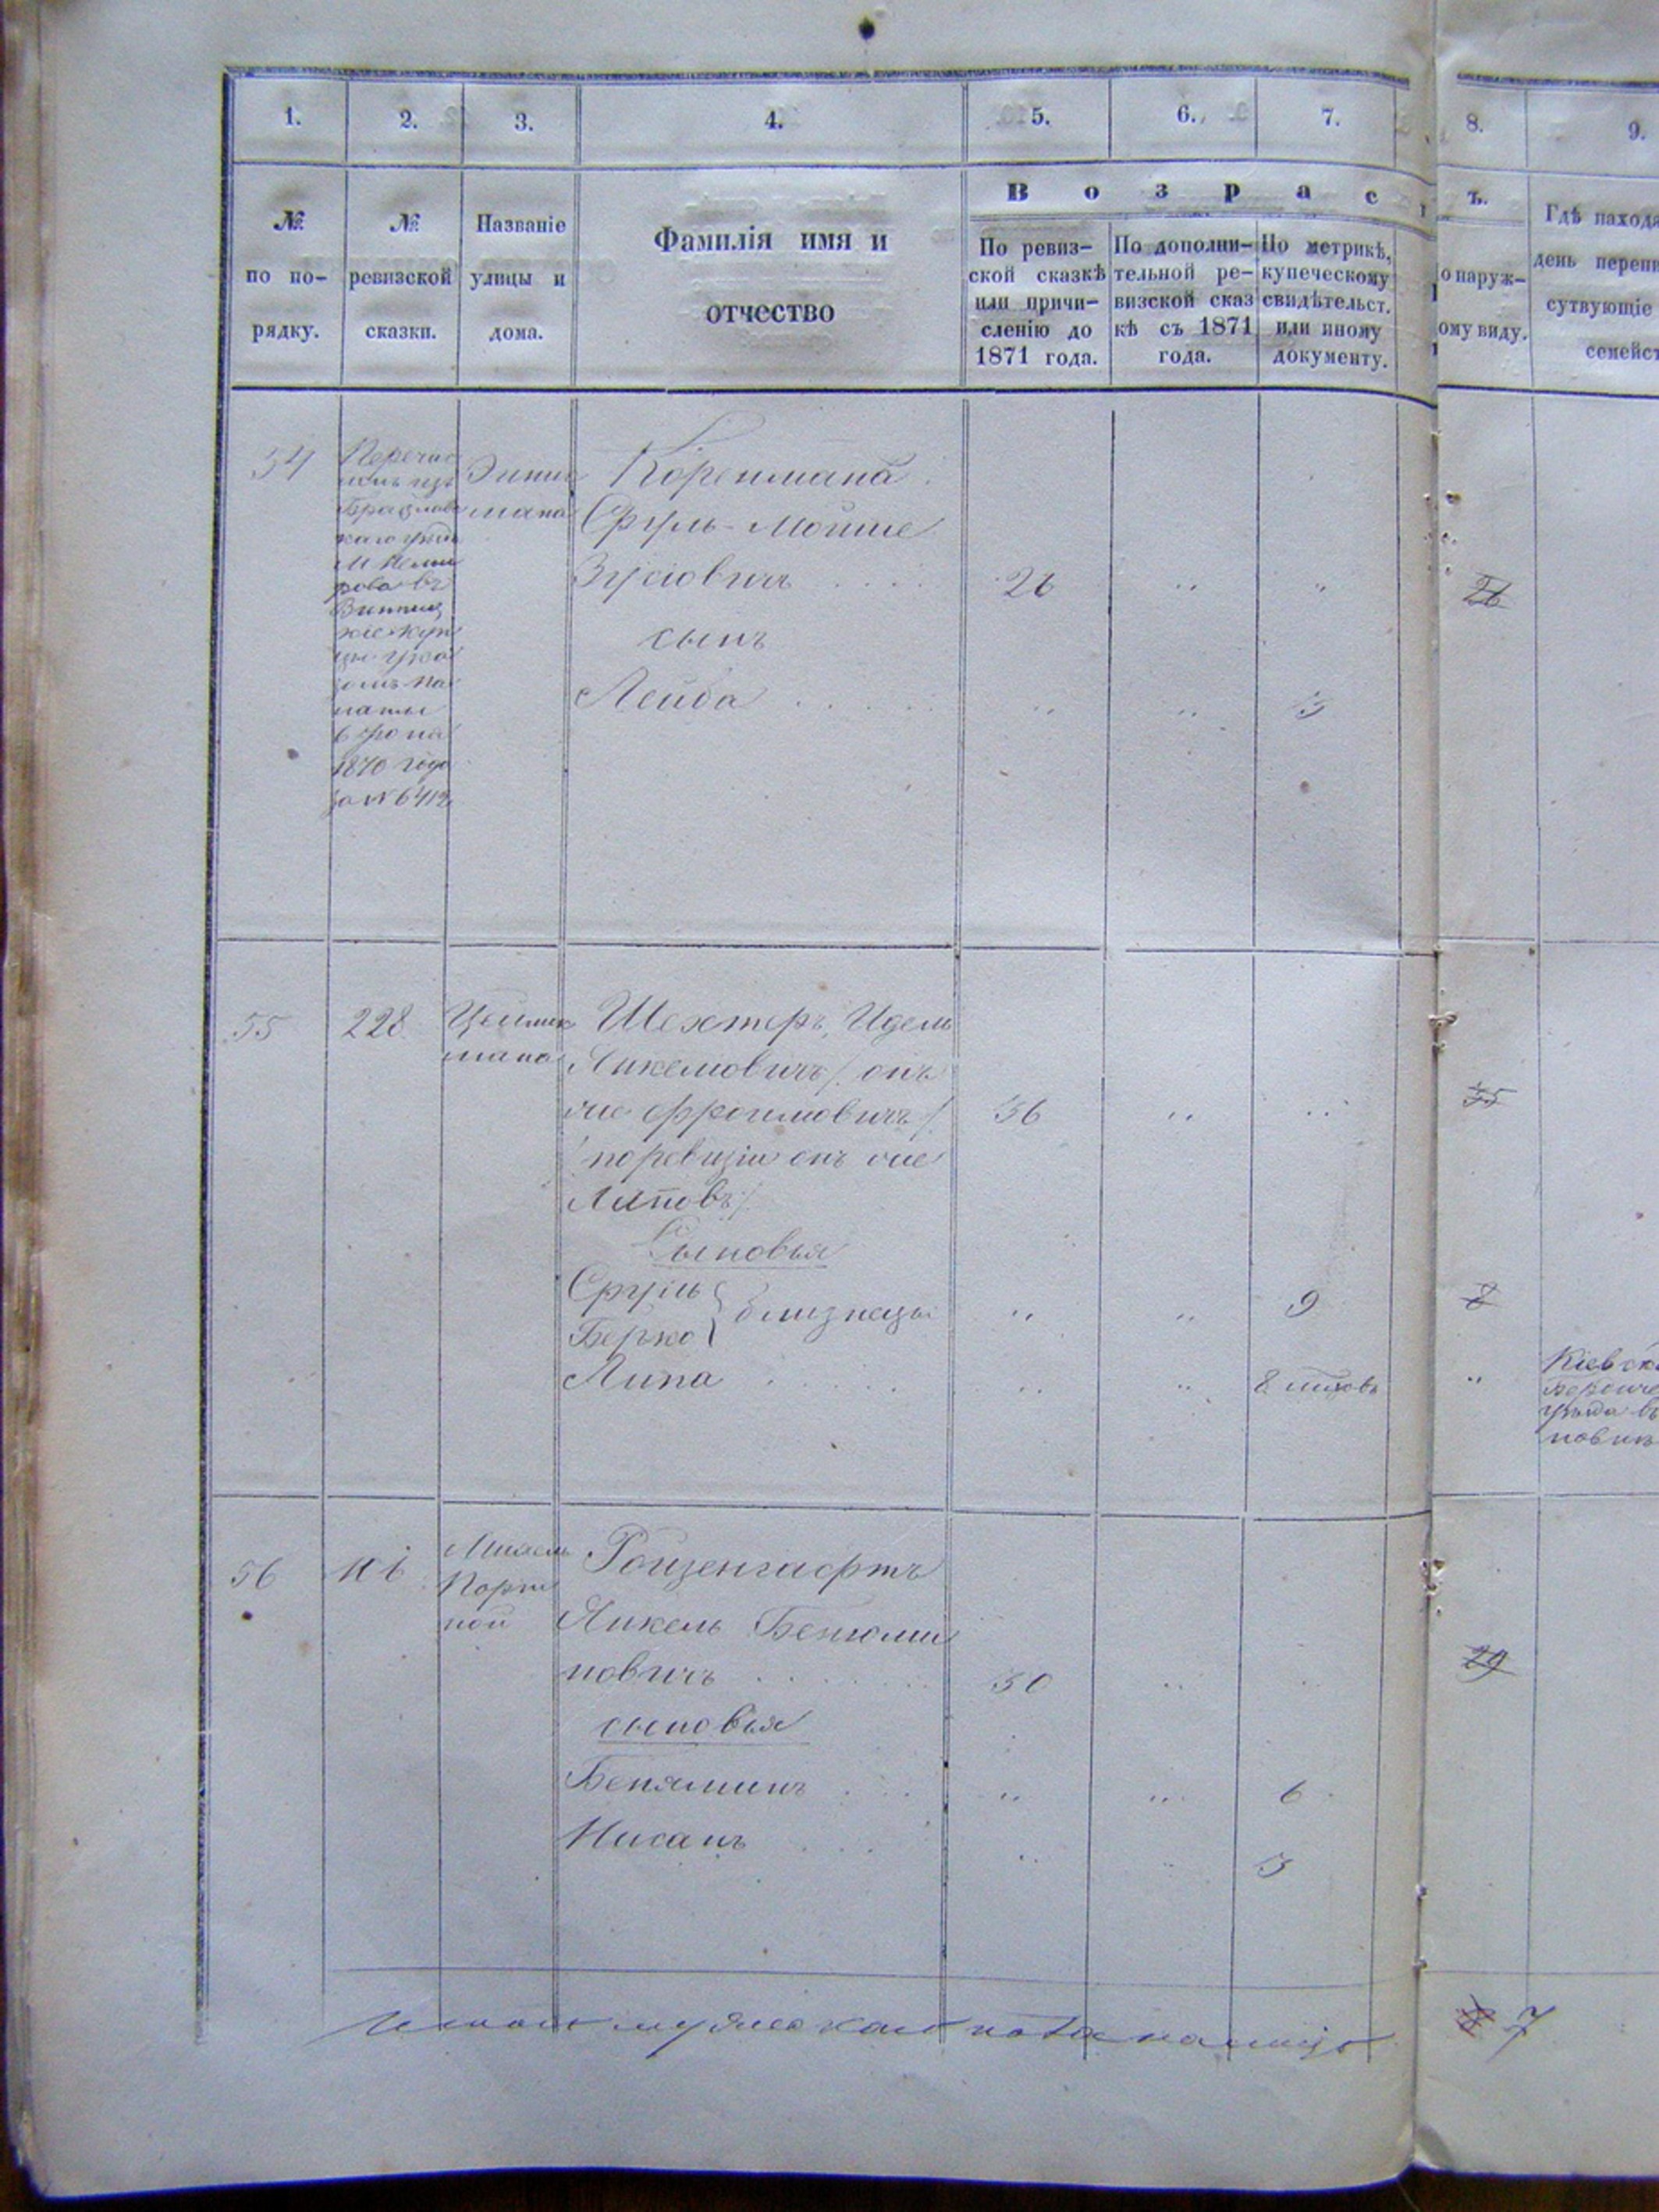 1. 2. 3. 4. 5. 6. 7. 8. 9.
В о з р а с ъ.
№ по по-рядку.
№ ревизской сказки.
Названіе улицы и дома.
Фамилія имя и отчество
По ревиз-
ской сказкѣ
или причи-
сленію до
1871 года.
По дополни-
тельной ре-
визской сказ
кѣ съ 1871
года.
По метрикѣ,
купеческому
свидѣтельст.
или иному
документу.
о наруж-
ому виду.
Гдѣ наход
день переп
сутвующіе
семейст
54
Перечис
Брацлавс
каго уѣзда
м Неми
рова въ
Винниц
кіе куп
цы указ
омъ па
латы
1870 года
за №6412
мана
Коренмана
Сруль-Мойше
Зусіовичъ 26 26
сынъ
Лейба 3
55 228 мана Шехтеръ, Идель
Янкелювичъ/. онъ
же Фроимовичъ/ 36 35
/поревизіи онъ же
Липовъ/
Сыновья
Сруль } близнецы 9 8
Берко
Липа
Кіевск
Бердиче
уѣзда въ
56 Порт
ной
Ройзенгафтъ
Янкель Бенюми
новичъ 30 29
сыновья
Беняминъ 6
Нисанъ 3
7